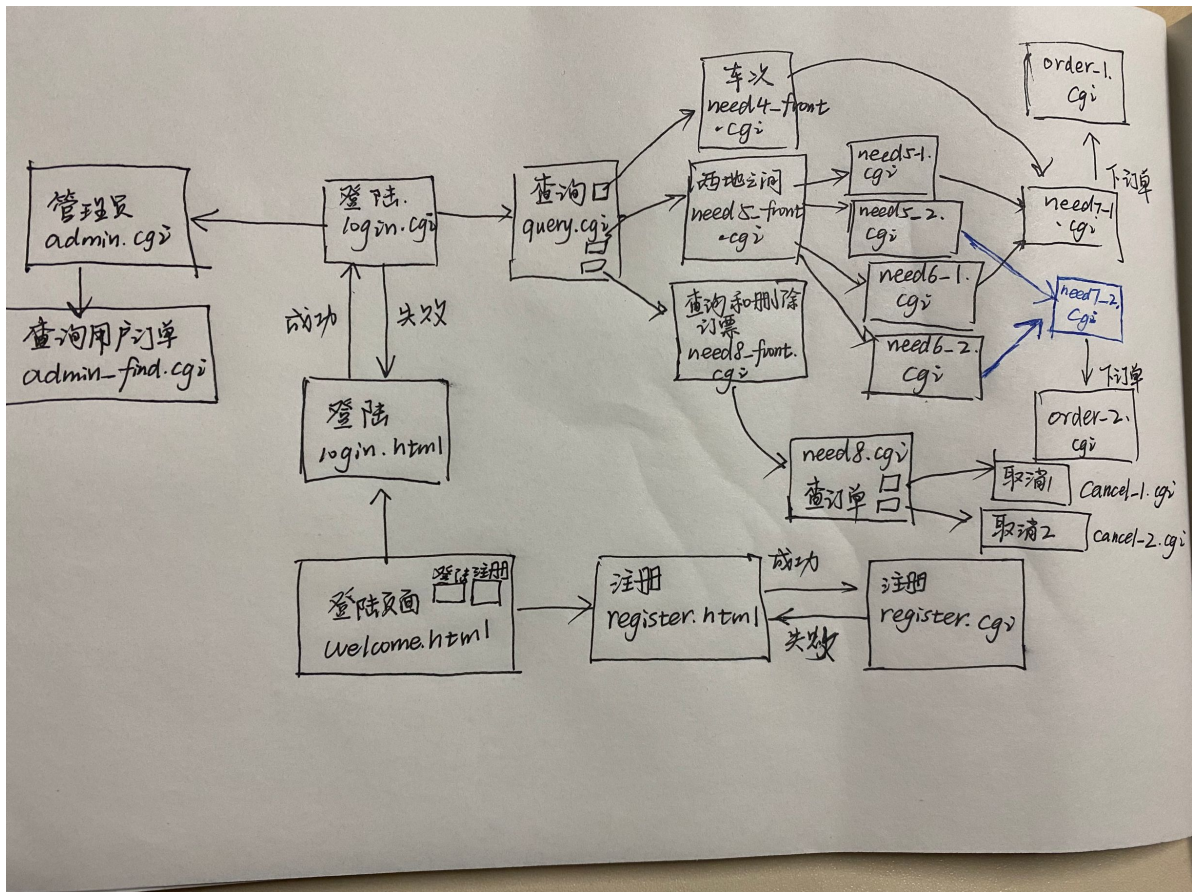 管理员
admin.cgi
查询用户订单
admin_find.cgi
登陆.
login.cgi
成功
失败
登陆
login.html
登陆 注册
登陆页面
welcome.html
注册
register.html
成功
失败
注册
register.cgi
查询
query.cgi
车次
need4_front
.cgi
两地之间
need5_front
.cgi
查询和删除
订票
need8_front.
cgi
need5-1.
cgi
need5_2.
cgi
need6-1.
cgi
need6_2.
cgi
need7-1
.cgi
下订单
order_1.
cgi
need7_2.
cgi
下订单
order_2.
cgi
need8.cgi
查订单
取消1
cancel_1.cgi
取消2
cancel_2.cgi